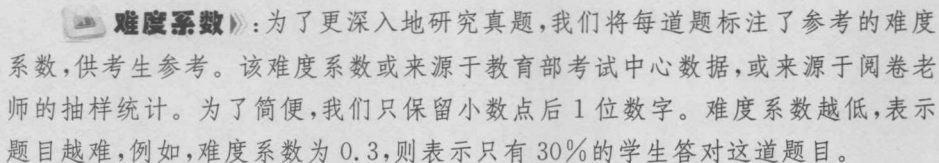 难度系数：为了更深入地研究真题，我们将每道题标注了参考的难度
系数，供考生参考。该难度系数或来源于教育部考试中心数据，或来源于阅卷老
师的抽样统计。为了简便，我们只保留小数点后1位数字。难度系数越低，表示
题目越难，例如，难度系数为0.3，则表示只有30%的学生答对这道题目。